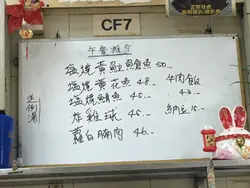 CF7
午餐推介
塩燒黃䱽鱠魚 50..
塩燒黃花魚 48..
塩燒鯖魚 45..
炸雞球 45..
蘿白腩肉 46..
牛肉飯
43..
納豆 15..
送例湯